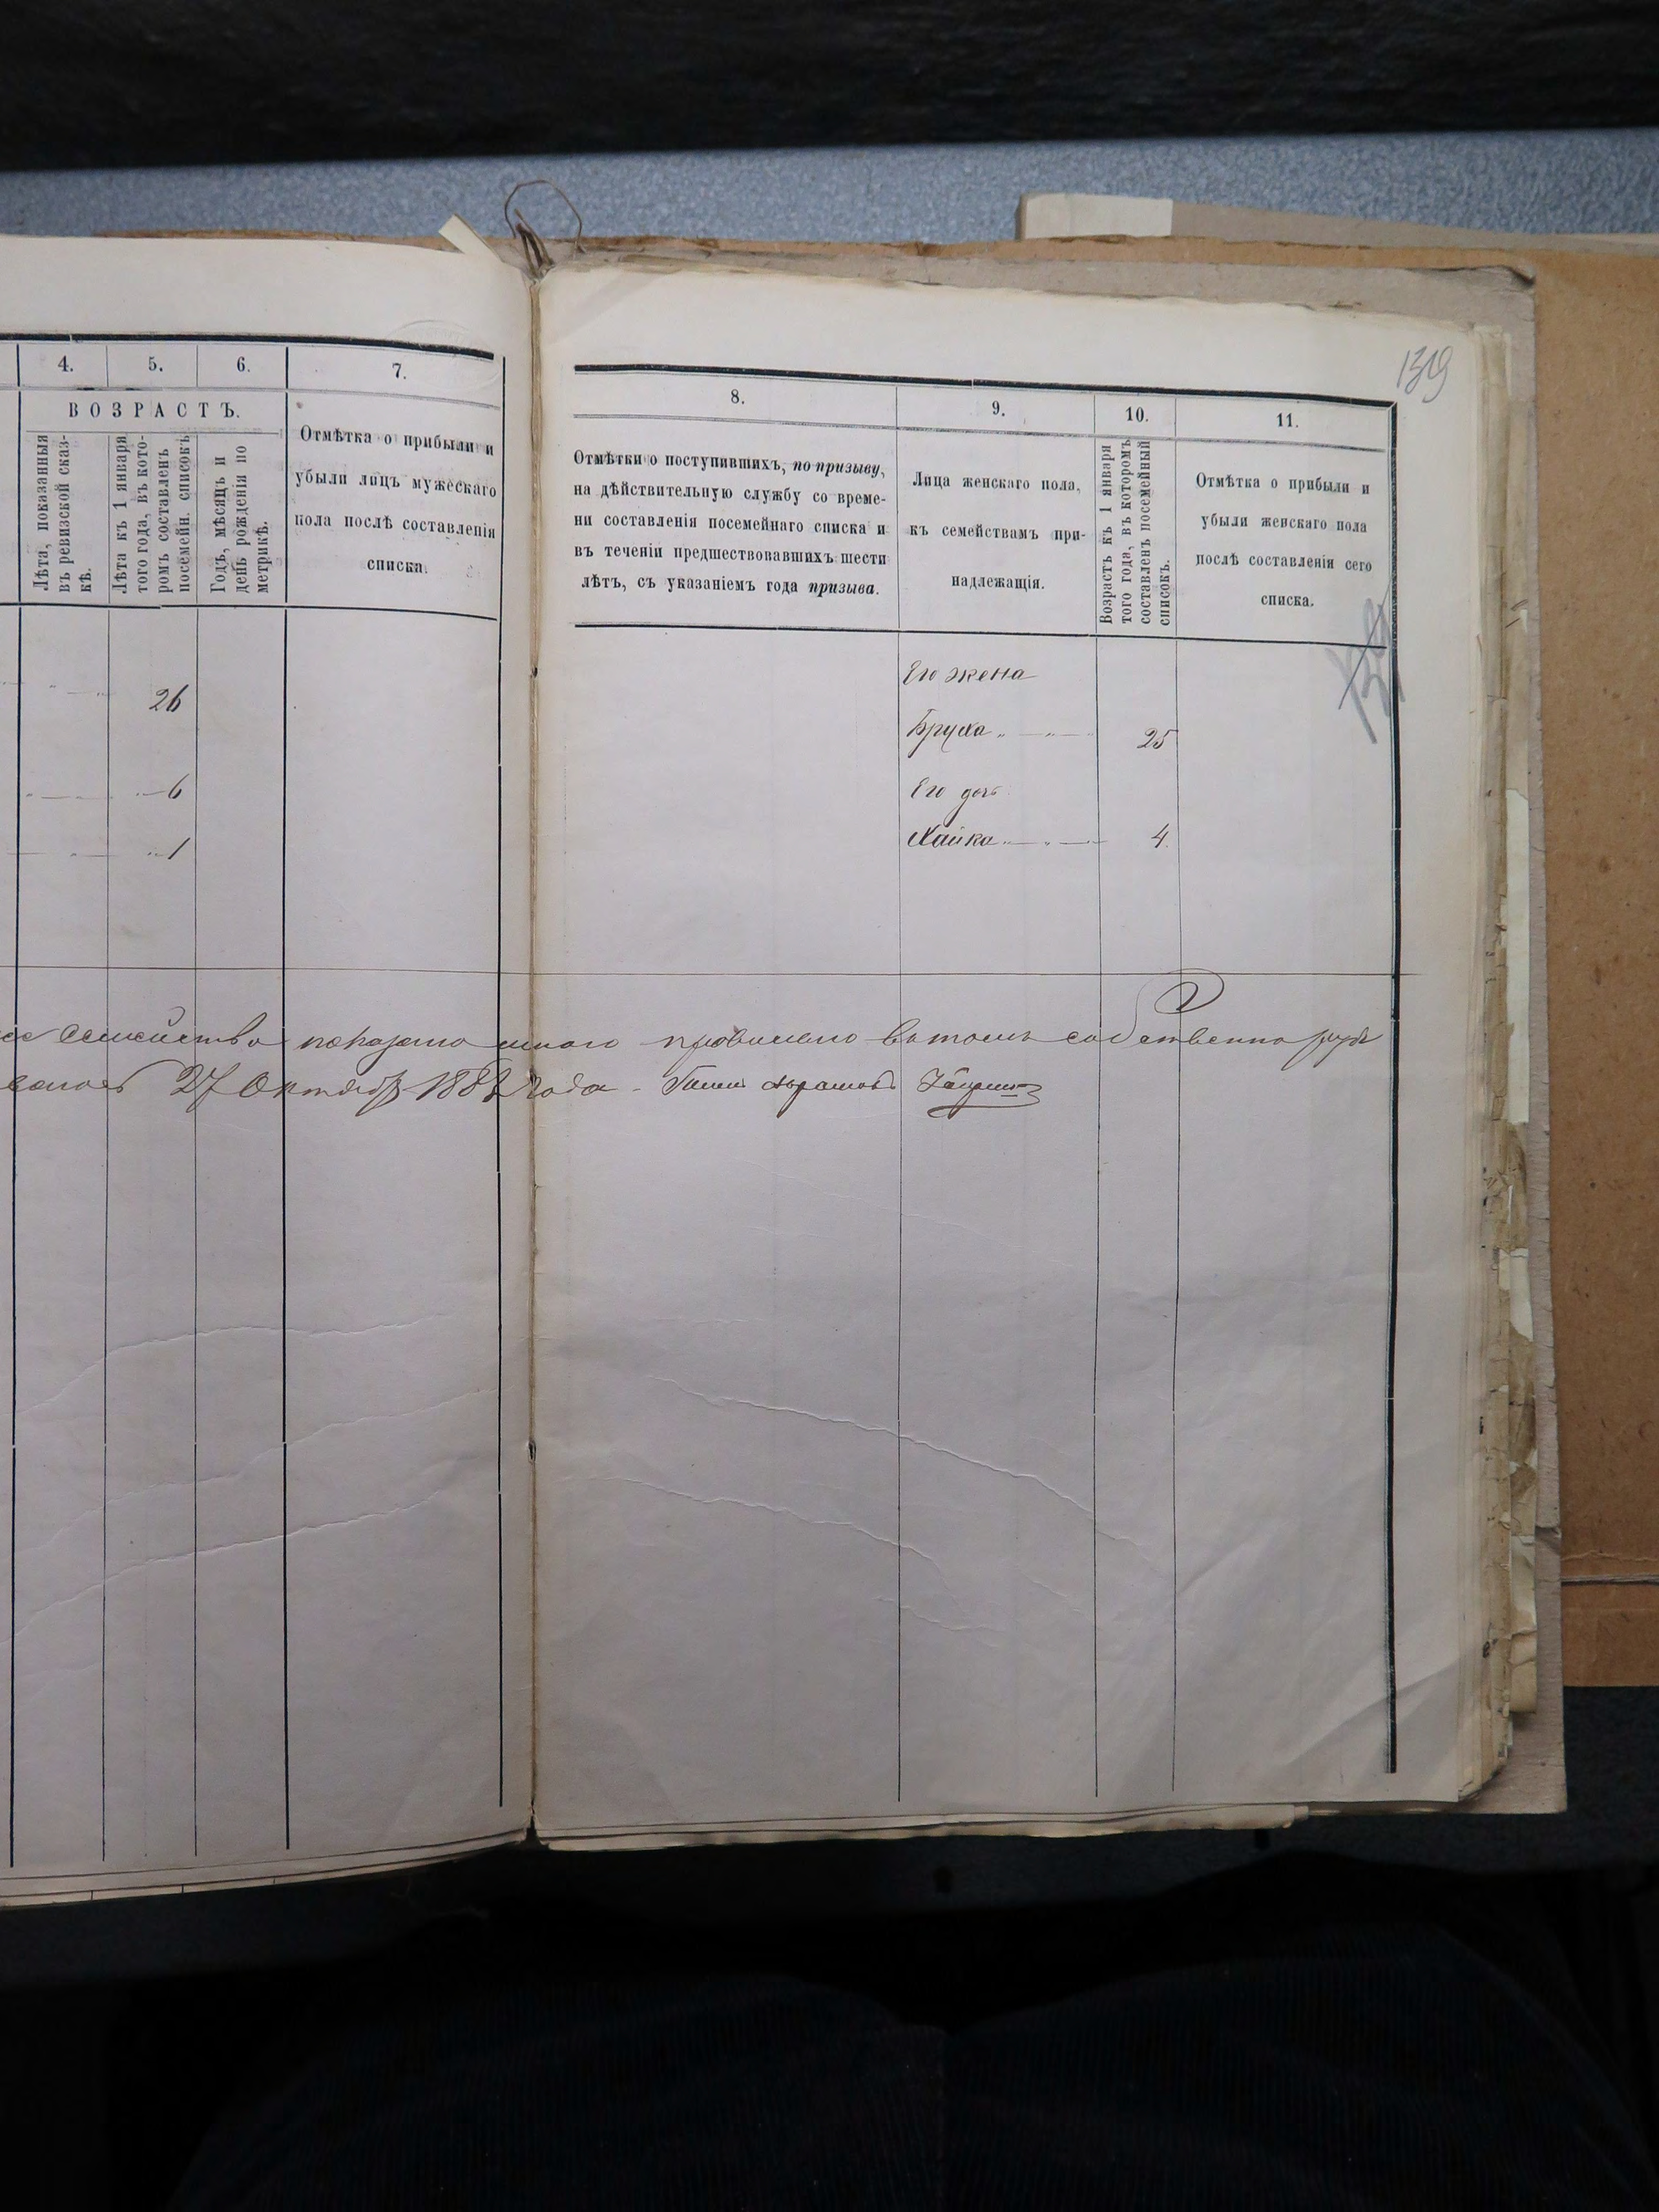 4. 5. 6. 7.
ВОЗРАСТЪ.
Лѣта, показанныя
въ ревизской сказ-
кѣ.
Лѣта къ 1 января
того года, въ кото-
ромъ составленъ
посемейн. списокъ
Годъ, мѣсяцъ и
день рожденія по
метрикѣ.
Отмѣтка о прибыли и
убыли лицъ мужескаго
пола послѣ составленія
списка.
26
6
1
139
8. 9. 10. 11.
Отмѣтки о поступившихъ, по призыву,
на дѣйствительную службу со време-
ни составленія посемейнаго списка и
въ теченіи предшествовавшихъ шести
лѣтъ, съ указаніемъ года призыва.
Лица женскаго пола,
къ семействамъ при-
надлежащія.
Возрастъ къ 1 января
того года, въ которомъ
составленъ посемейный
списокъ.
Отмѣтка о прибыли и
убыли женскаго пола
послѣ составленіи сего
списка.
Его жена
Бруха 25
Его дочь
Хайка 4
семейство показано мною правильно въ томъ собственно руч
27 Октября 188 года